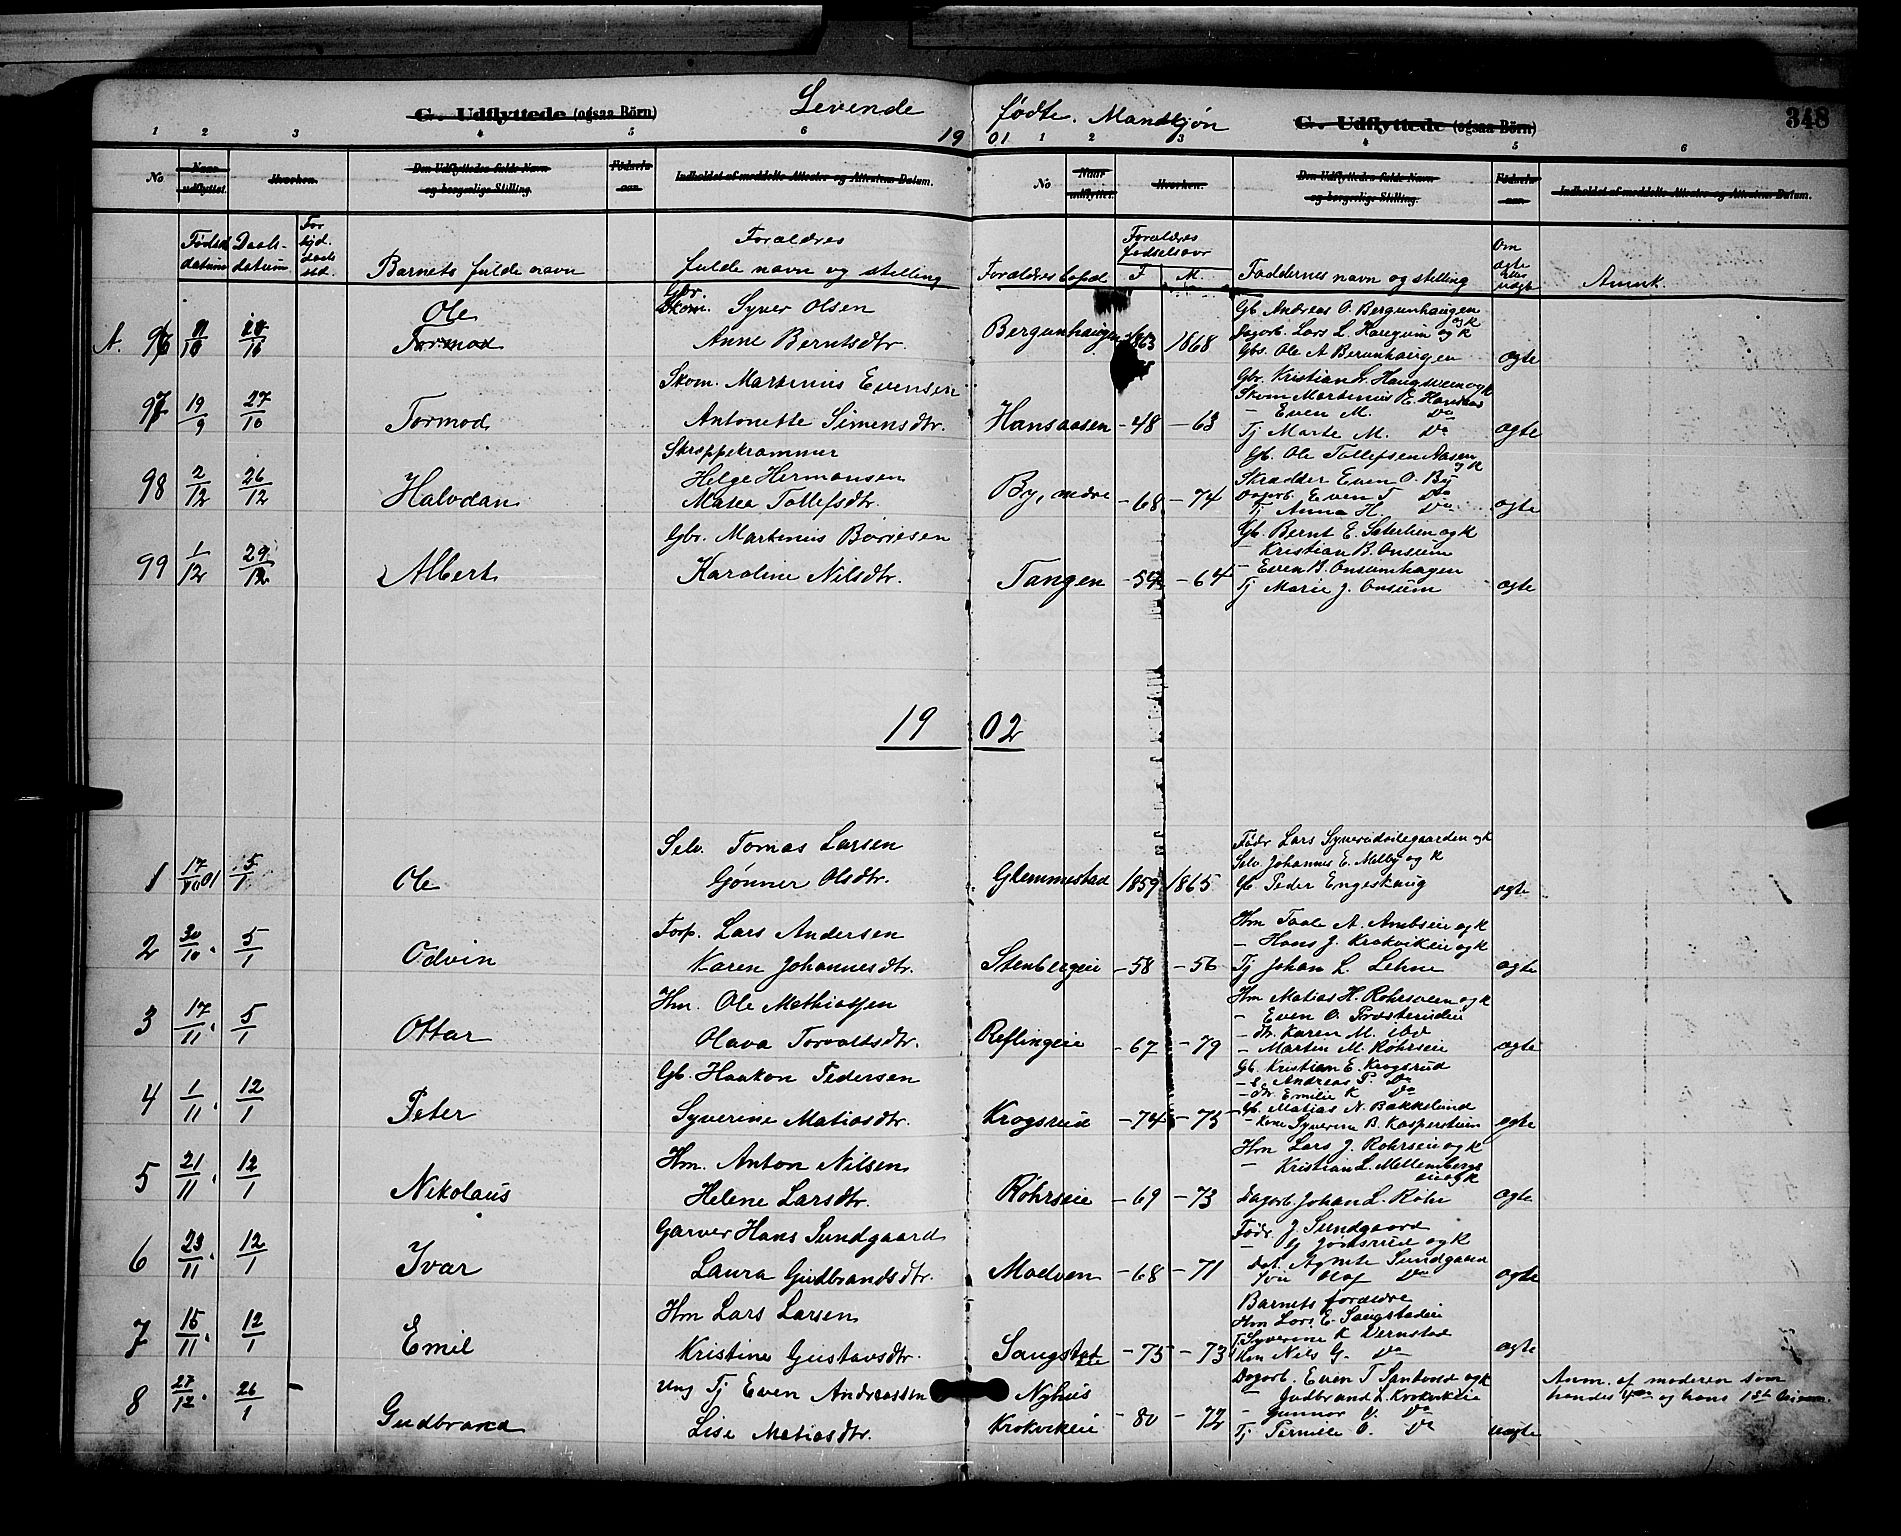 Levende fødte. Mandkjøn
G. Udflyttede (ogsaa Börn)
G. Udflyttede (ogsaa Börn)
348
1 2 3 4 5 6
1901
1 2 3 4 5 6
No
Naar udflyttet.
Hvorhen.
Den Udflyttedes fulde Navn og borgerlige Stilling.
Födsels-aar.
Indholdet af meddelte Attester og Attestens Datum.
No
Naar udflyttet.
Hvorhen.
Den Udflyttedes fulde Navn og borgerlige Stilling.
Födsels-aar.
Indholdet af meddelte Attester og Attestens Datum.
Fødsels datum
Daabs-datum
For tjd. daab std.
Barnets fulde navn
Forældres fulde navn og stilling
Forældres bopæl
Forældres fødselsaar
F. M.
Faddernes navn og stilling
Om ægte eller uægte
Anmk.
A. 96
Ole
Tormod
Gbr. Skom. Syver Olsen
Anne Berntsdtr.
Bergunhaugen 1863 1868
Gb. Andreas O. Bergunhaugen og k
Dagarb. Lars L. Haugum og k
Gbs. Ole A Berunhaugen
ægte
97 19/9 27/10
Tormod
Skom. Martinius Evensen
Antonette Simensdtr.
Hansaasen -48 -63
Gbr. Kristian L. Haugsveen og k
Skom Martenius E. Hansaas
- Even M. Do
Tj Marte M. Do
ægte
98 2/12 26/12
Halvdan
Skreppekrammer
Helge Hermansen
Matea Tollefsdtr.
By, nedre -68 -74
Gb. Ole Tollefsen Aasen og k
Skrædder Even O. By
Dagarb. Even T Do
Tj Anna H. Do
ægte
99 1/12 29/12
Albert
Gbr. Martinius Børresen
Karoline Nilsdtr.
Tangen -54 -64
Gb. Bernt E. Sæterlien og k
- Kristian B. Onsum
- Even B. Onsumhagen
Tj Marie J. Onsum
ægte
1902
1 17/10 01 5/1
Ole
Selv. Tomas Larsen
Gønner Olsdtr.
Glemmestad 1859 1865
Fødr Lars og k
Selv. Johannes E. Melby og k
Gb. Peder Engeskaug
ægte
2 30/10 5/1
Odvin
Forp. Lars Andersen
Karen Johannesdtr.
Stenbergeie -58 -56
Hm Taale A. Ambseie og k
- Hans J. Krokvikeie og k
Tj Johan L. Lehne
ægte
3 17/11 5/1
Ottar
Hm. Ole Mathiassen
Olava Torvaldsdtr.
Reflingeie -67 -79
Hm Matias H. Rohrsveen og k
- Even O. Prosterudeie
- dtr. Karen M. ibd
- Martin M. Røhrseie
ægte
4 1/11 12/1
Peter
Gb. Haakon Pedersen
Syverine Matiasdtr.
Krogsrud -74 -75
Gb. Kristian E. Krogsrud
- s. Andreas P. Do
- dtr. Emilie K Do
- Gb. Matias N. Bakkelund
- Kone Syverine B. Kasperstuen
ægte
5 21/11 12/1
Nikolaus
Hm. Anton Nilsen
Helene Larsdtr.
Røhrseie -69 -73
Hm Lars J. Rohrseie og k
- Kristian L. Mellembergseie og k
Dagarb. Johan L. Røhr
ægte
6 23/11 12/1
Ivar
Garver Hans Sundgaard
Laura Gudbrandsdtr.
Moelven -68 -71
Fødr. J. Sundgaard
- G Jønsrud og k
Dat. Agnete Sundgaard
Olaf Do
ægte
7 15/11 12/1
Emil
Hm Lars Larsen
Kristine Gustavsdtr.
Saugstad -75 -73
Barnets forældre
Hm Lars E. Saugstadeie
Tj Syverine K Vernstad
Hm Nils G. Do
ægte
8 27/12 26/1
Gudbrand
Ung Tj Even Andreassen
Lise Matiasdtr.
Nyhus
Krokvikeie -80 -72
Dagarb. Even T Sandvold og k
- Gudbrand L. Krokvikeie
- Gunnar O. Do
Tj Pernille O. Do
uægte
Anm. af moderen som
hendes 4de og hans 1st